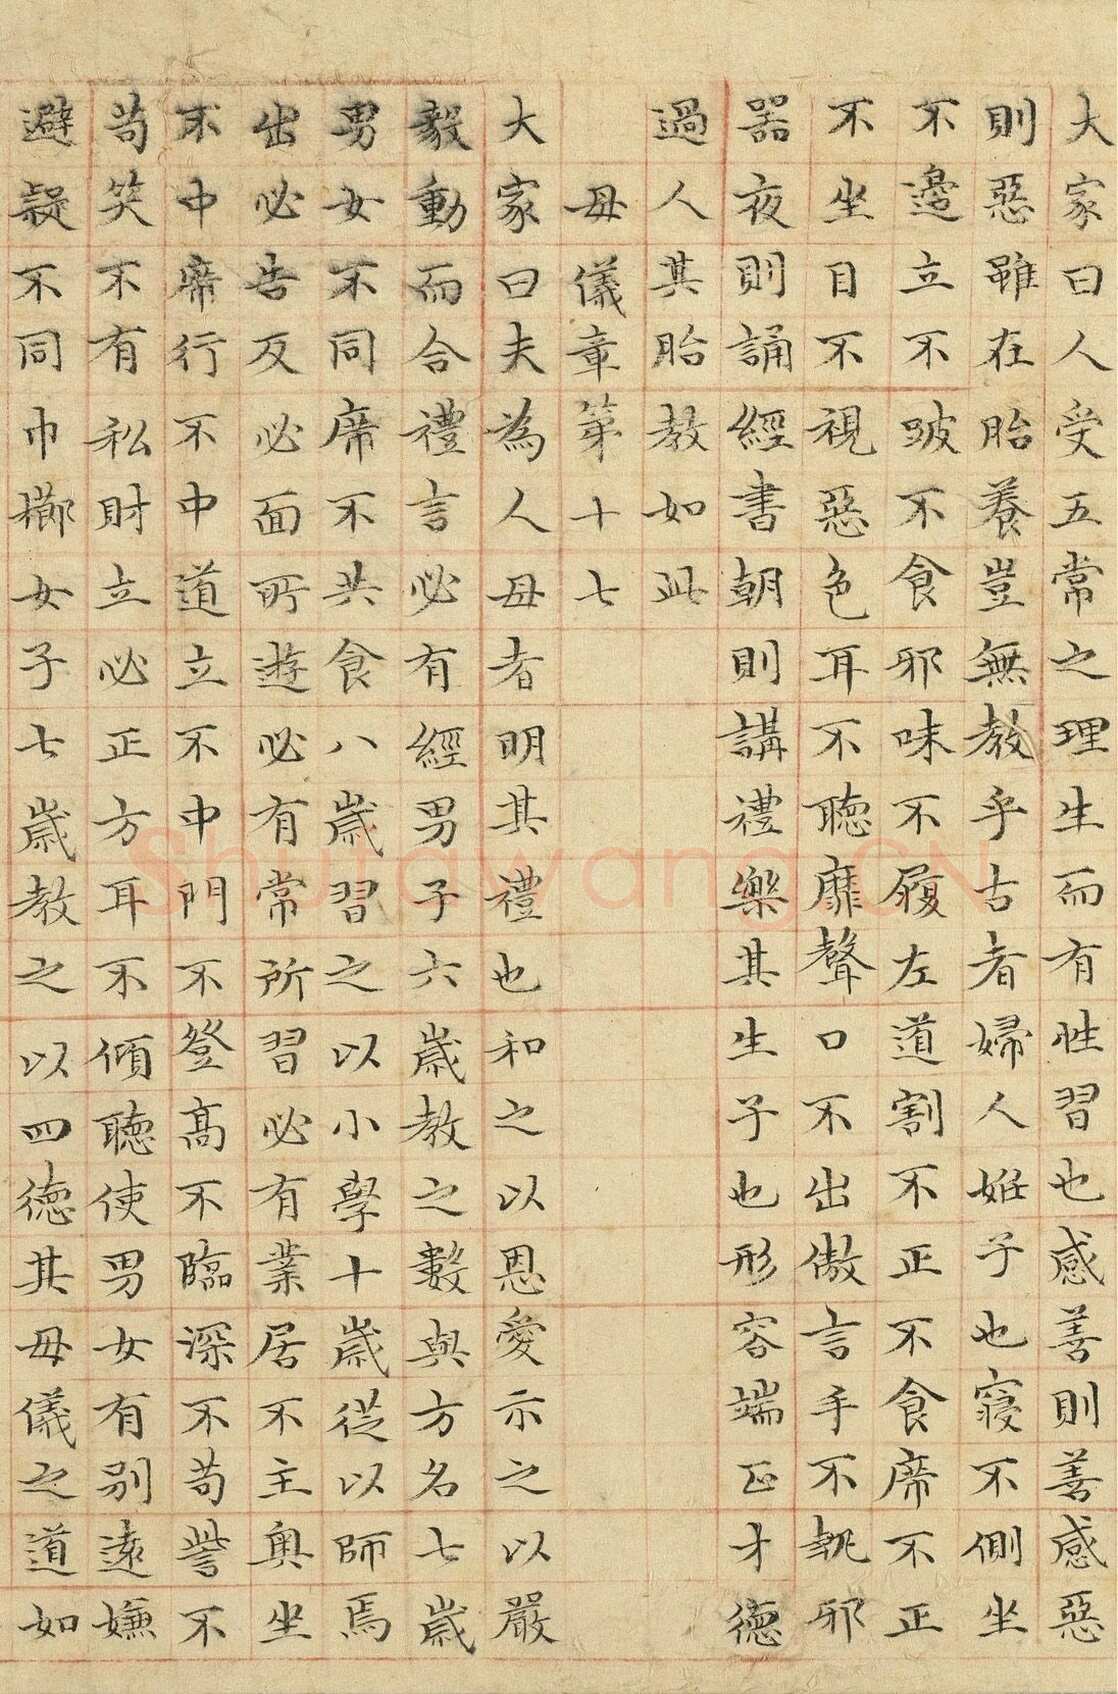 大家曰人受五常之理生而有性習也感善則善感惡
則惡雖在胎養豈無教乎古者婦人妊子也寢不側坐
不邊立不跛不食邪味不履左道割不正不食席不正
不坐目不視惡色耳不聽靡聲口不出傲言手不執邪
器夜則誦經書朝則講禮樂其生子也形容端正才德
過人其胎教如此
母儀章第十七
大家曰夫為人母者明其禮也和之以恩愛示之以嚴
毅動而合禮言必有經男子六歲教之數與方名七歲
男女不同席不共食八歲習之以小學十歲從以師焉
出必告反必面所遊必有常所習必有業居不主奧坐
不中席行不中道立不中門不登高不臨深不苟訾不
苟笑不有私財立必正方耳不傾聽使男女有別遠嫌
避疑不同巾櫛女子七歲教之以四德其母儀之道如
Shufawang.CN